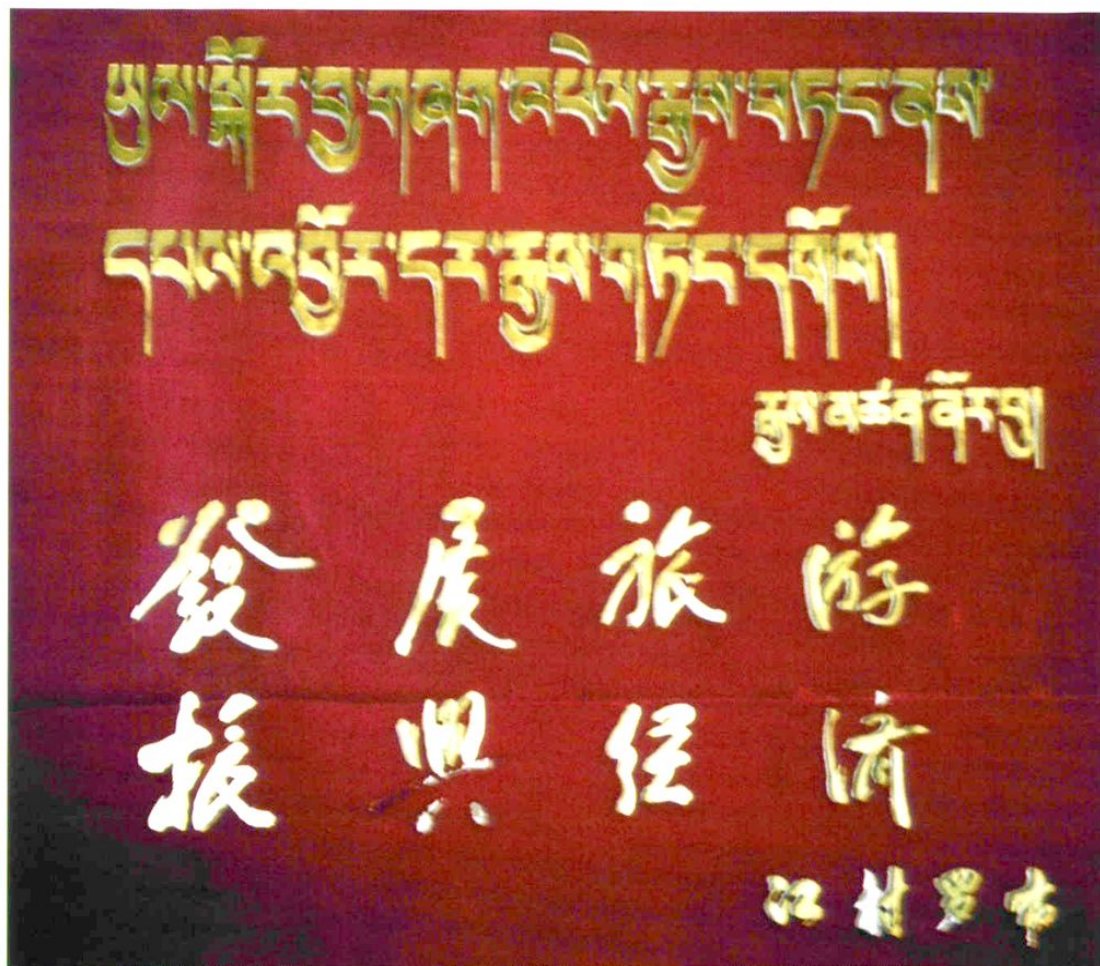 ཡུལ་སྐོར་བྱ་གཞག་འཕེལ་རྒྱས་བཏང་ནས
དཔལ་འབྱོར་དར་རྒྱས་གཏོང་དགོས།
རྒྱལ་མཚན་ནོར་བུ།
發展旅游
振興经济
江村罗布